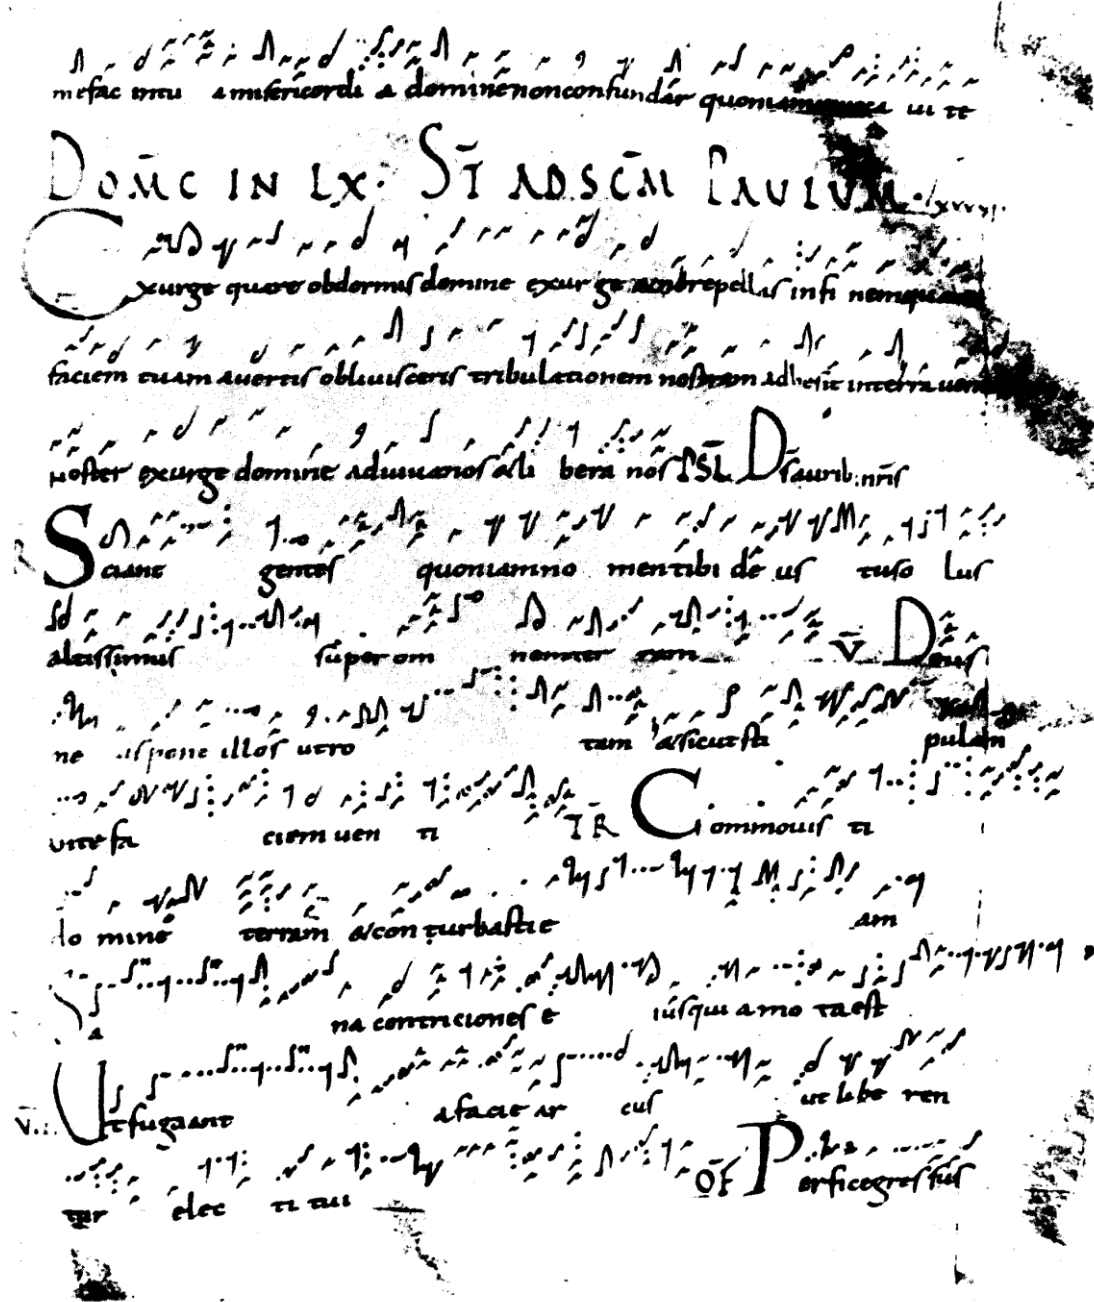 me fac in tu a misericordi a domine non confundar quoniam inuoca ui te
DOM̄C IN LX. ST̄ AD SC̄M PAULUM. lxxxxi.
Exurge quare obdormis domine exurge repellas in fi nem quare
faciem tuam auertis obliuisceris tribulationem nostram adhesit in terra uenter
noster exurge domine adiuua nos & li bera nos PSL. Ds auribus nr̄is
R Sciant gentes quoniam no men tibi de us tu so lus
altissimus super om nem ter ram V̄ Deus
ne us pone illos ut ro tam & sicut sti pulam
ante fa ciem uen ti TR̄ Commouisti
do mine terram & con turbasti e am
V Sa na contriciones e ius qui a mo ta est
V̄. Ut fugiant a facie ar cus ut libe ren
tur elec ti tui OF̄ Perfice gressus